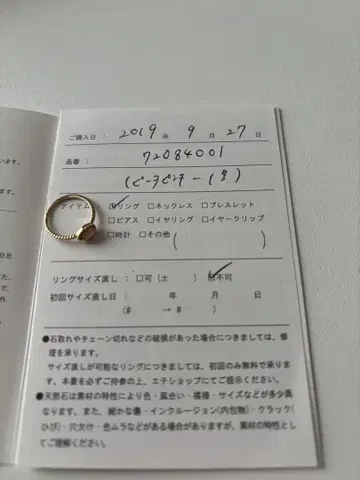 ご購入日： 2019 年 9 月 27 日
品番： 72084001
アイテム： ☑リング □ネックレス □ブレスレット
□ピアス □イヤリング □イヤークリップ
□時計 □その他（ ）
リングサイズ直し： □可（± ） ☑不可
初回サイズ直し日： 年 月 日
（# → # ）
●石取れやチェーン切れなどの破損があった場合につきましては、修
理を承ります。
サイズ直しが可能なリングにつきましては、初回のみ無料で承りま
す。本書を必ずご持参の上、エテショップにてご提示ください。
●天然石は素材の特性により色・風合い・模様・サイズなどが多少異
なります。また、細かな傷・インクルージョン(内包物)・クラック(
ひび)・穴欠け・色ムラなどがある場合がありますが、素材の特性とし
てご理解ください。